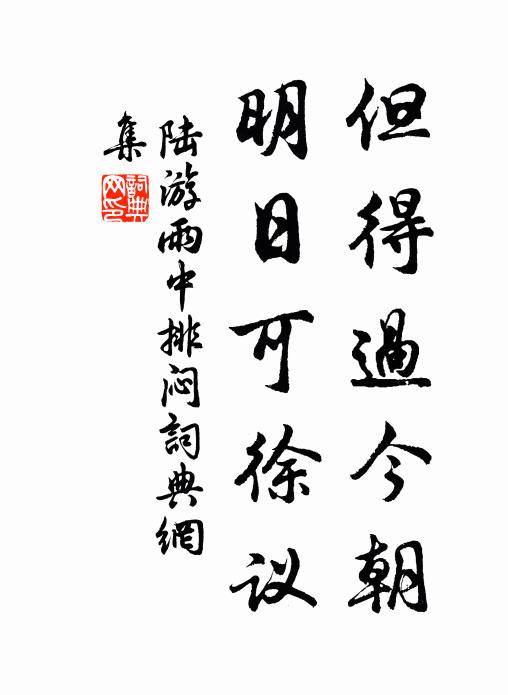 但得過今朝
明日可徐议
陆游雨中排闷詞典網
集
詞典
网印